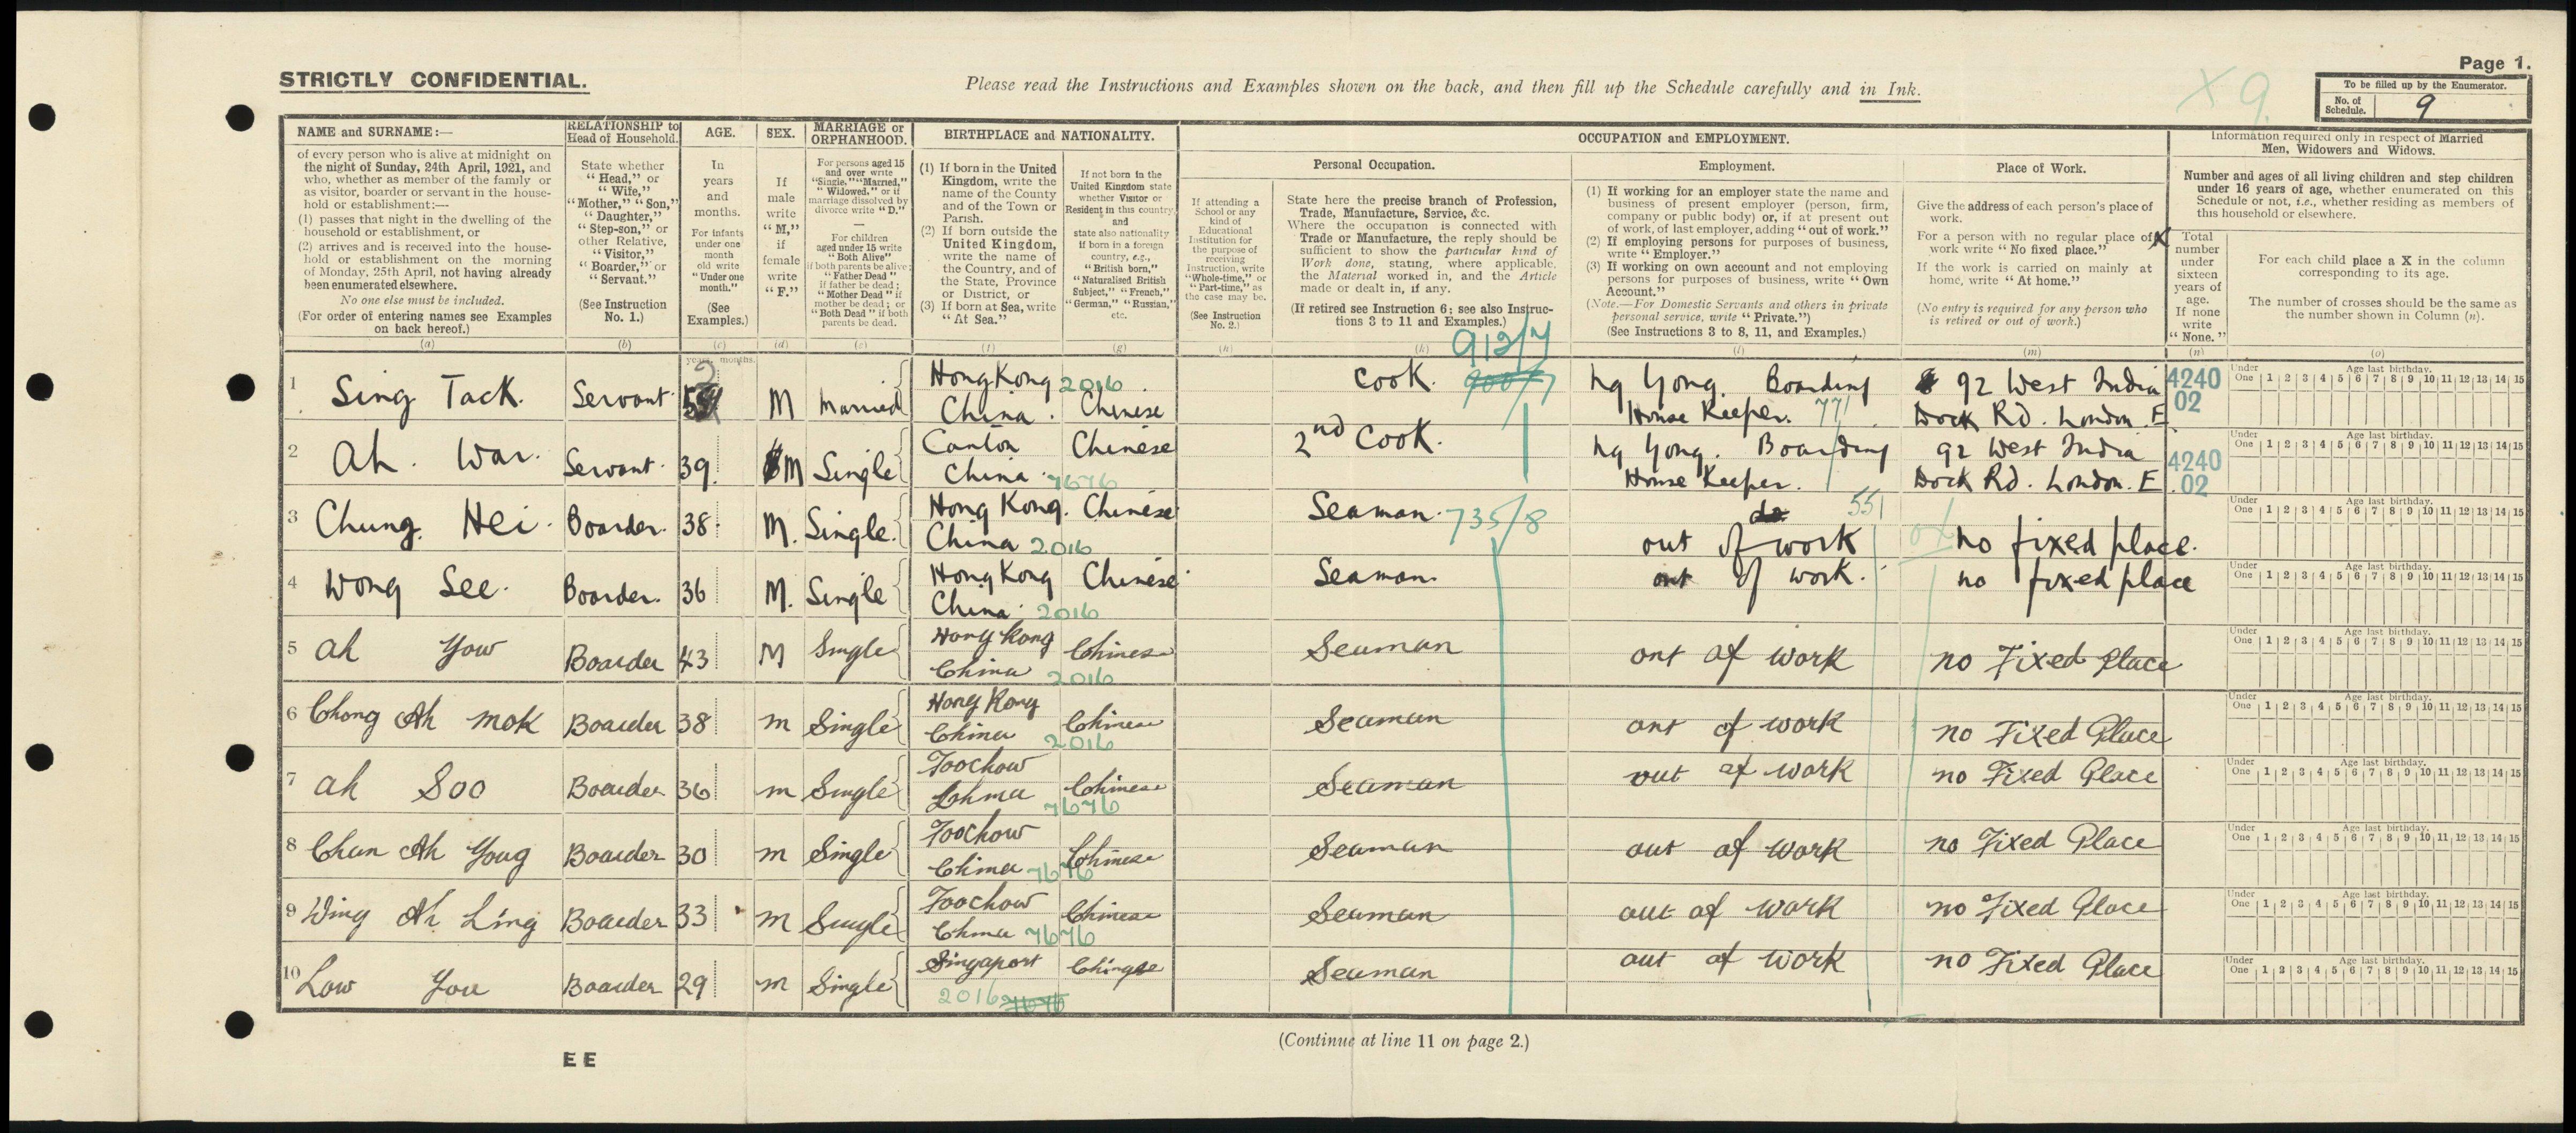 STRICTLY CONFIDENTIAL.
Please read the Instructions and Examples shown on the back, and then fill up the Schedule carefully and in Ink.
Page 1.
X 9
To be filled up by the Enumerator.
No. of Schedule. 9
NAME and SURNAME:—
of every person who is alive at midnight on
the night of Sunday, 24th April, 1921, and
who, whether as member of the family or
as visitor, boarder or servant in the house-
hold or establishment:—
(1) passes that night in the dwelling of the
household or establishment, or
(2) arrives and is received into the house-
hold or establishment on the morning
of Monday, 25th April, not having already
been enumerated elsewhere.
No one else must be included.
(For order of entering names see Examples
on back hereof.)
(a)
RELATIONSHIP to
Head of Household.
State whether
"Head," or
"Wife,"
"Mother," "Son,"
"Daughter,"
"Step-son," or
other Relative,
"Visitor,"
"Boarder," or
"Servant."
(See Instruction
No. 1.)
(b)
AGE.
In
years
and
months.
For infants
under one
month
old write
"Under one
month."
(See
Examples.)
(c)
SEX.
If
male
write
"M,"
if
female
write
"F."
(d)
MARRIAGE or
ORPHANHOOD.
For persons aged 15
and over write
"Single," "Married,"
"Widowed," or if
marriage dissolved by
divorce write "D."
For children
aged under 15 write
"Both Alive"
if both parents be alive;
"Father Dead" if
father be dead;
"Mother Dead" if
mother be dead; or
"Both Dead" if both
parents be dead.
(e)
BIRTHPLACE and NATIONALITY.
(1) If born in the United
Kingdom, write the
name of the County
and of the Town or
Parish.
(2) If born outside the
United Kingdom,
write the name of
the Country, and of
the State, Province
or District, or
(3) If born at Sea, write
"At Sea."
(f)
If not born in the
United Kingdom state
whether Visitor or
Resident in this country,
and
state also nationality
if born in a foreign
country, e.g.,
"British born,"
"Naturalised British
Subject," "French,"
"German," "Russian,"
etc.
(g)
OCCUPATION and EMPLOYMENT.
If attending a
School or any
kind of
Educational
Institution for
the purpose of
receiving
Instruction, write
"Whole-time," or
"Part-time," as
the case may be.
(See Instruction
No. 2.)
(h)
Personal Occupation.
State here the precise branch of Profession,
Trade, Manufacture, Service, &c.
Where the occupation is connected with
Trade or Manufacture, the reply should be
sufficient to show the particular kind of
Work done, stating, where applicable,
the Material worked in, and the Article
made or dealt in, if any.
(If retired see Instruction 6; see also Instruc-
tions 3 to 11 and Examples.)
(k)
Employment.
(1) If working for an employer state the name and
business of present employer (person, firm,
company or public body) or, if at present out
of work, of last employer, adding "out of work."
(2) If employing persons for purposes of business,
write "Employer."
(3) If working on own account and not employing
persons for purposes of business, write "Own
Account."
(Note.—For Domestic Servants and others in private
personal service, write "Private.")
(See Instructions 3 to 8, 11, and Examples.)
(l)
Place of Work.
Give the address of each person's place of
work.
For a person with no regular place of
work write "No fixed place."
If the work is carried on mainly at
home, write "At home."
(No entry is required for any person who
is retired or out of work.)
(m)
Information required only in respect of Married
Men, Widowers and Widows.
Number and ages of all living children and step children
under 16 years of age, whether enumerated on this
Schedule or not, i.e., whether residing as members of
this household or elsewhere.
Total
number
under
sixteen
years of
age.
If none
write
"None."
(n)
For each child place a X in the column
corresponding to its age.
The number of crosses should be the same as
the number shown in Column (n).
(o)
years. months.
912/7
1 Sing Tack. Servant M Married HongKong 2016 China. Chinese Cook. 900/7 Ng Yong. Boarding House Keeper. 771 92 West India Dock Rd. London. E 4240 02
Under One 1 2 3 4 5 6 7 8 9 10 11 12 13 14 15 Age last birthday.
2 Ah. War. Servant. 39. M Single Canton China. 7676 Chinese 2nd Cook. Ng Yong. Boarding House Keeper. 92 West India Dock Rd. London. E 4240 02
Under One 1 2 3 4 5 6 7 8 9 10 11 12 13 14 15 Age last birthday.
3 Chung. Hei. Boarder. 38. M. Single. Hong Kong. China 2016 Chinese Seaman. 735/8 do. 551 out of work no fixed place.
Under One 1 2 3 4 5 6 7 8 9 10 11 12 13 14 15 Age last birthday.
4 Wong See. Boarder. 36 M. Single Hong Kong China. 2016 Chinese Seaman. out of work. no fixed place
Under One 1 2 3 4 5 6 7 8 9 10 11 12 13 14 15 Age last birthday.
5 Ah Yow Boarder 43 M Single Hong Kong China 2016 Chinese Seaman out of work no Fixed Place
Under One 1 2 3 4 5 6 7 8 9 10 11 12 13 14 15 Age last birthday.
6 Chong Ah Mok Boarder 38 m Single Hong Kong China 2016 Chinese Seaman out of work no Fixed Place
Under One 1 2 3 4 5 6 7 8 9 10 11 12 13 14 15 Age last birthday.
7 Ah Soo Boarder 36 m Single Foochow China 7676 Chinese Seaman out of work no Fixed Place
Under One 1 2 3 4 5 6 7 8 9 10 11 12 13 14 15 Age last birthday.
8 Chun Ah Youg Boarder 30 m Single Foochow China 7676 Chinese Seaman out of work no Fixed Place
Under One 1 2 3 4 5 6 7 8 9 10 11 12 13 14 15 Age last birthday.
9 Wing Ah Ling Boarder 33 m Single Foochow China 7676 Chinese Seaman out of work no Fixed Place
Under One 1 2 3 4 5 6 7 8 9 10 11 12 13 14 15 Age last birthday.
10 Low You Boarder 29 m Single Singaport 2016 7676 Chinese Seaman out of work no Fixed Place
Under One 1 2 3 4 5 6 7 8 9 10 11 12 13 14 15 Age last birthday.
(Continue at line 11 on page 2.)
EE